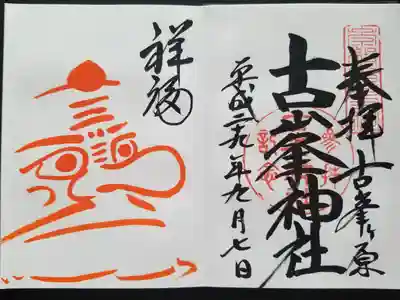 奉拝 古峯ヶ原
古峯神社
平成二九年九月七日
祥福